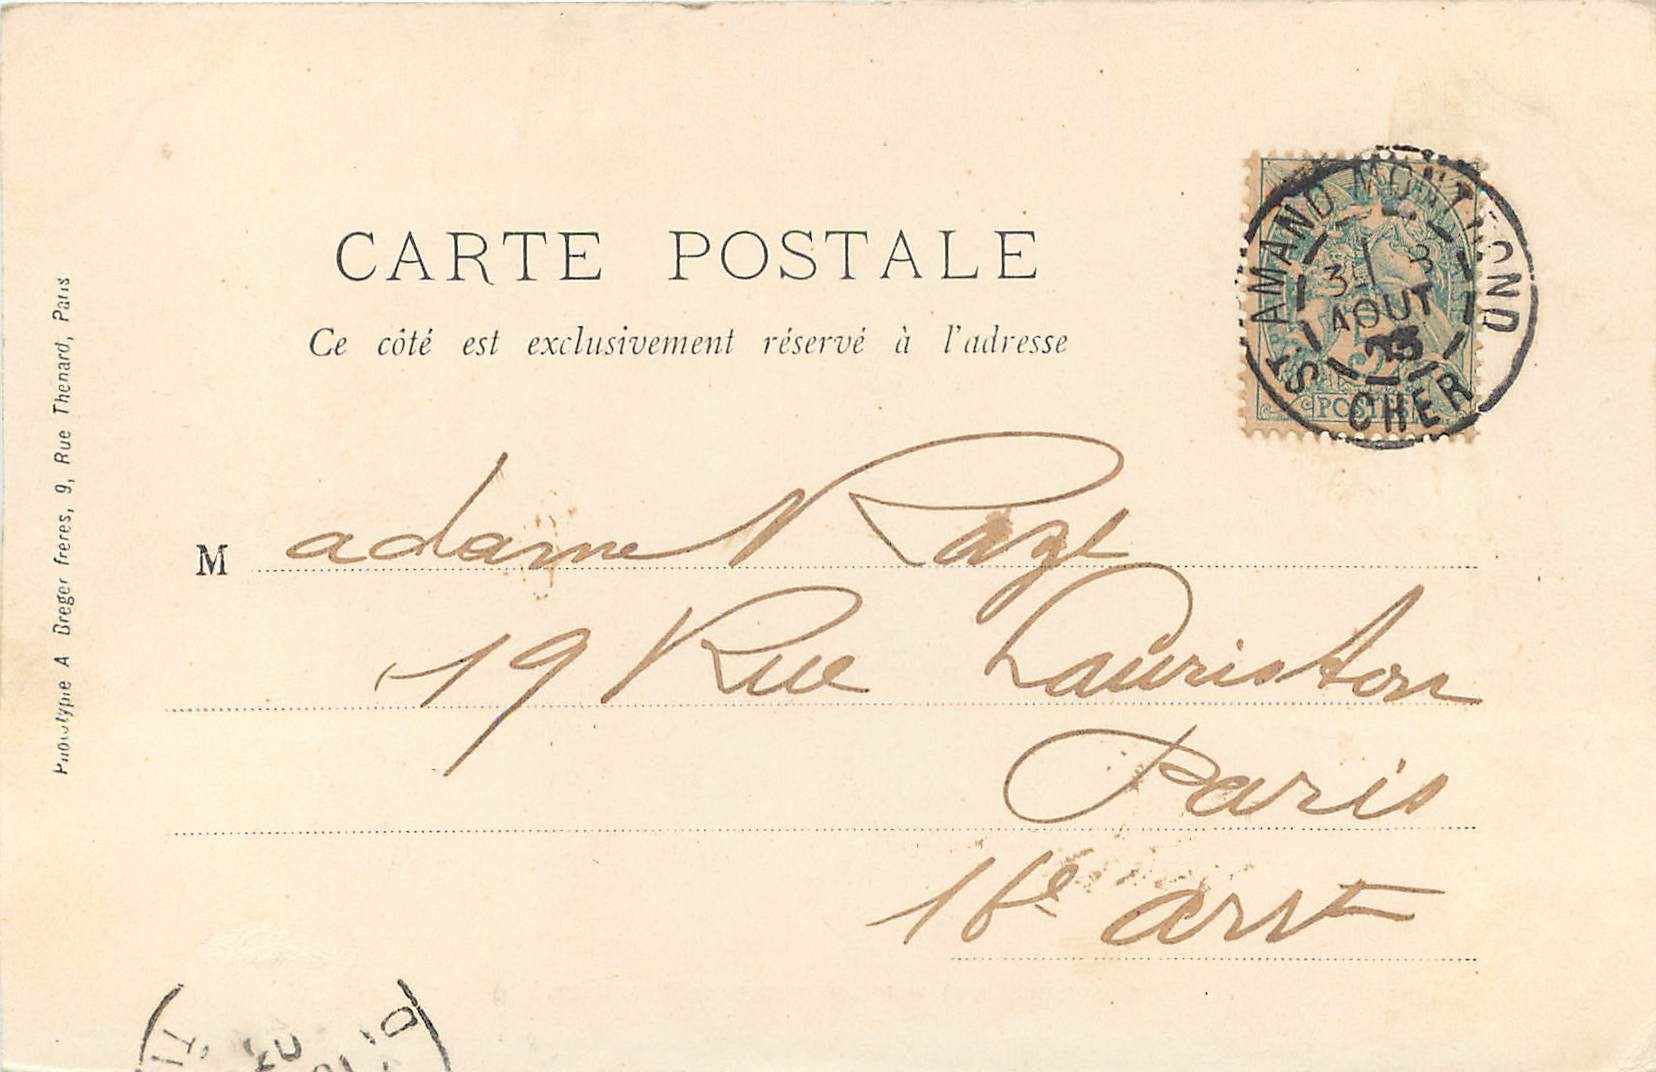 CARTE POSTALE
Ce côté est exclusivement réservé à l'adresse
Phototypie A Breger freres, 9, Rue Thenard, Paris
ST AMAND MONTROND
AOUT
CHER
POSTES
M adame Raze
19 Rue Lauriston
Paris
16e arrt